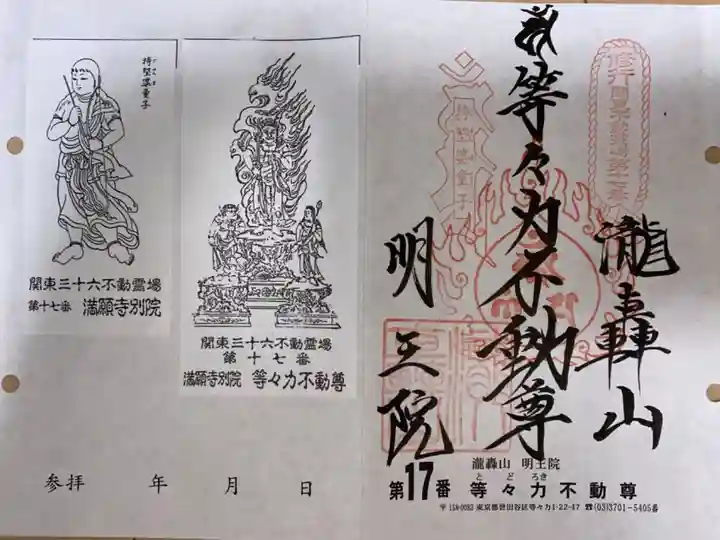 持堅婆童子
関東三十六不動霊場
第十七番 満願寺別院
関東三十六不動霊場
第十七番
満願寺別院 等々力不動尊
参拝 年 月 日
持堅婆童子
瀧轟山
等々力不動尊
明王院
瀧轟山 明王院
とどろき
第17番 等々力不動尊
東京都世田谷区等々力1-22-47 ☎(03)3701-5405番